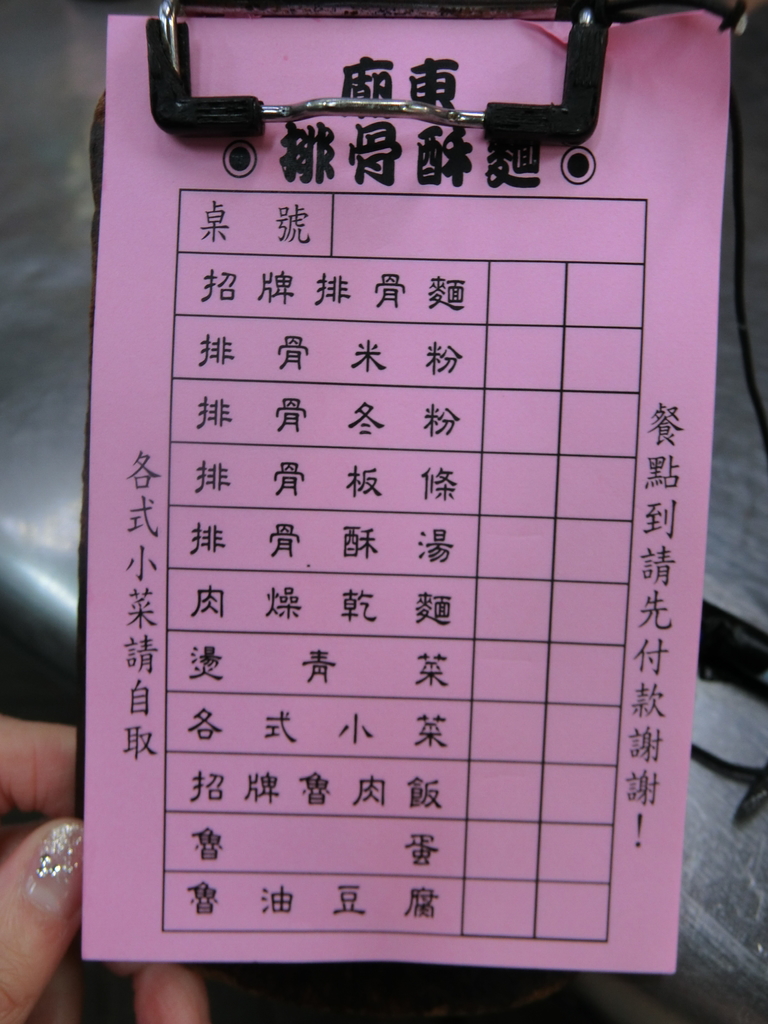 廟東
排骨酥麵
桌號
招牌排骨麵
排骨米粉
排骨冬粉
排骨板條
排骨酥湯
肉燥乾麵
燙青菜
各式小菜
招牌魯肉飯
魯蛋
魯油豆腐
餐點到請先付款謝謝！
各式小菜請自取